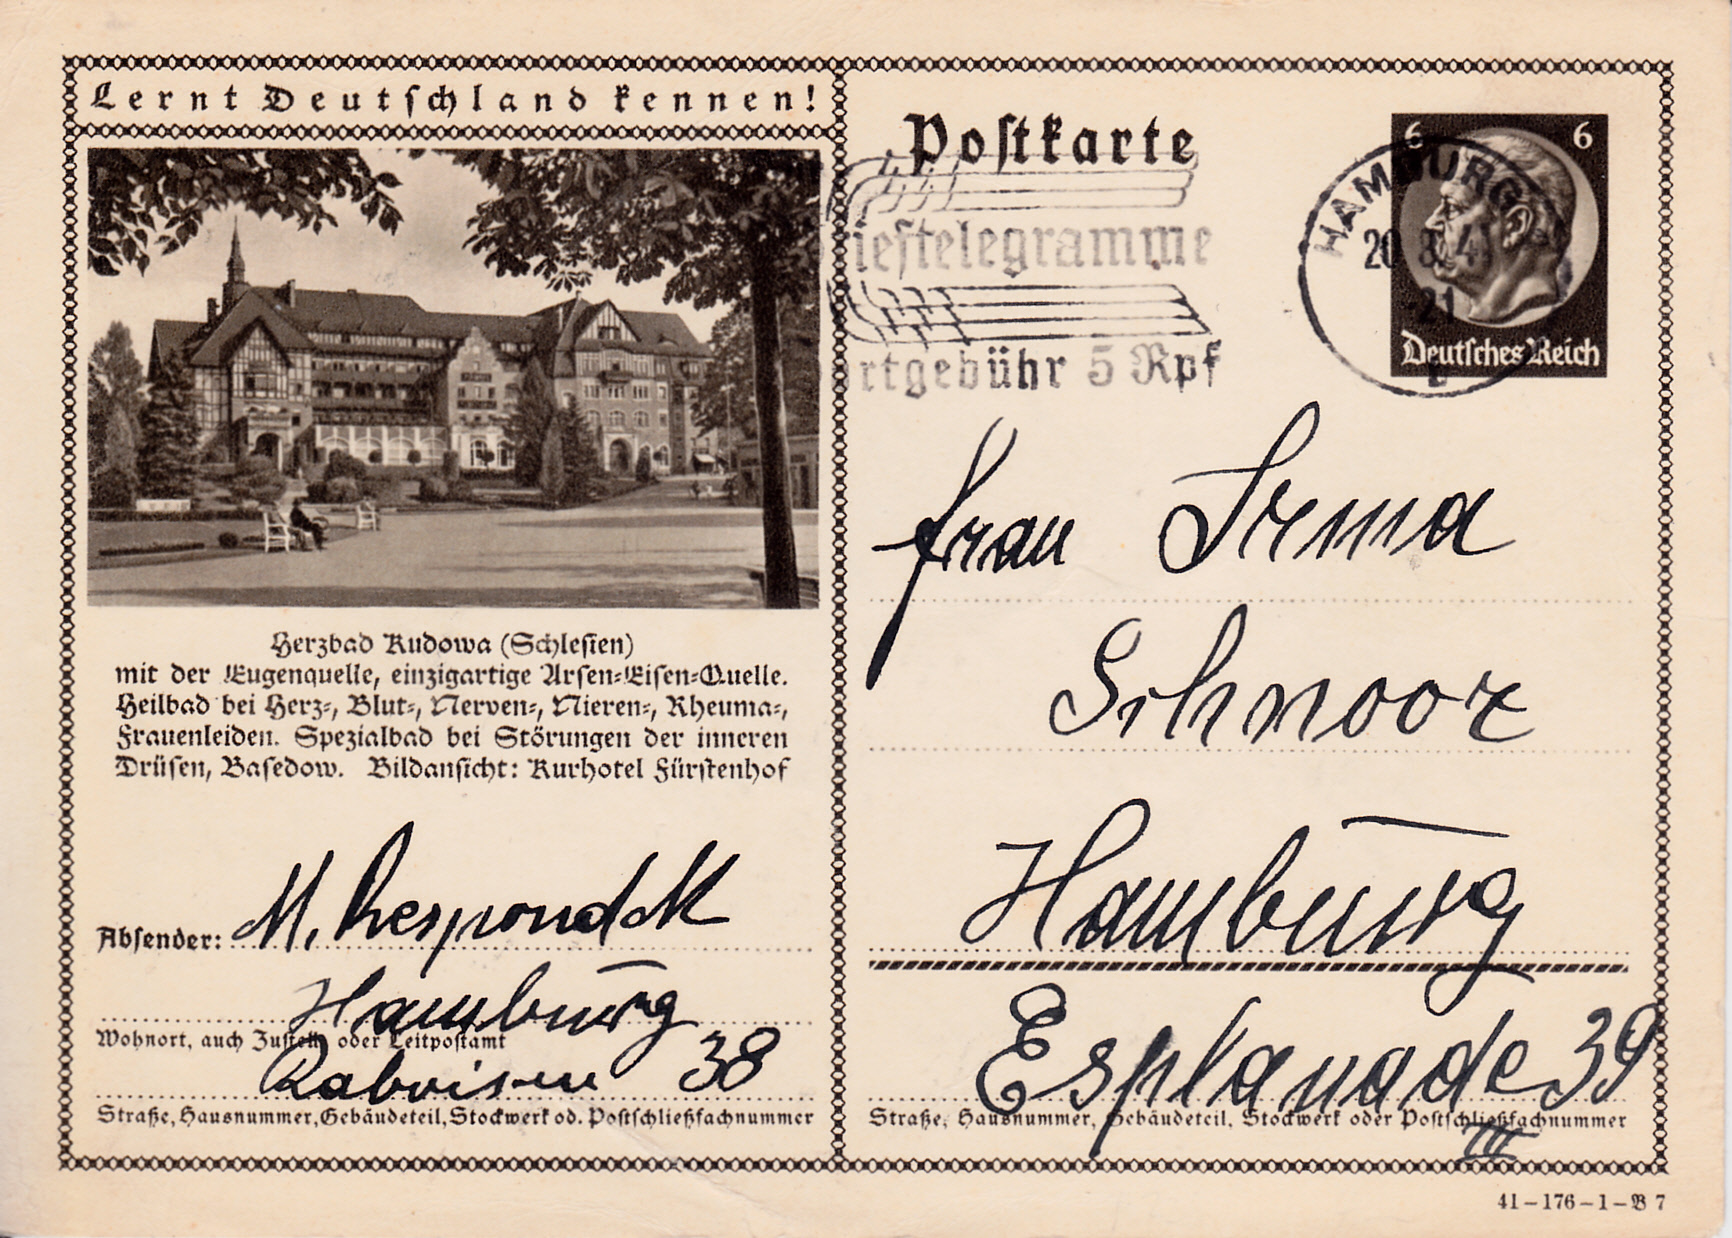 Lernt Deutschland kennen!
Herzbad Kudowa (Schlesien)
mit der Eugenquelle, einzigartige Arsen-Eisen-Quelle.
Heilbad bei Herz-, Blut-, Nerven-, Nieren-, Rheuma-,
Frauenleiden. Spezialbad bei Störungen der inneren
Drüsen, Basedow. Bildansicht: Kurhotel Fürstenhof
Absender: M. Respondek
Hamburg
Wohnort, auch Zustell- oder Leitpostamt
Raboisen 38
Straße, Hausnummer, Gebäudeteil, Stockwerk od. Postschließfachnummer
Postkarte
iestelegramme
rtgebühr 5 Rpf
HAMBURG
20.8.41
21
6 6
Deutsches Reich
Frau Irma
Schnoor
Hamburg
Esplanade 39
Straße, Hausnummer, Gebäudeteil, Stockwerk oder Postschließfachnummer
III
41-176-1-B 7